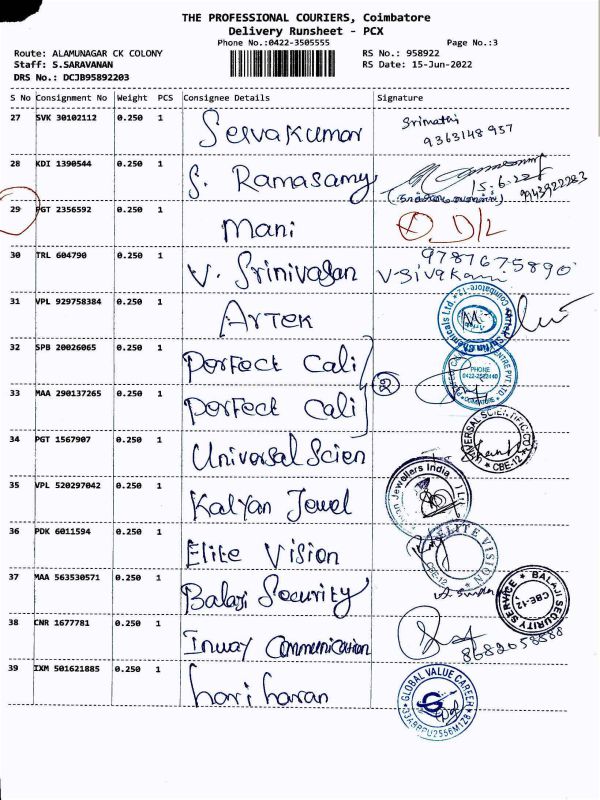 THE PROFESSIONAL COURIERS, Coimbatore
Delivery Runsheet - PCX
Phone No.:0422-3505555 Page No.:3
Route: ALAMUNAGAR CK COLONY RS No.: 958922
Staff: S.SARAVANAN RS Date: 15-Jun-2022
DRS No.: DCJB95892203
S No Consignment No Weight PCS Consignee Details Signature
27 SVK 30102112 0.250 1 Selvakumar Srimathi
9363148957
28 KDI 1390544 0.250 1 S. Ramasamy 15.6.22
9943922223
29 PGT 2356592 0.250 1 Mani D/L
30 TRL 604790 0.250 1 V. Srinivasan 9787675890
V.Sivakami
31 VPL 929758384 0.250 1 Artek
32 SPB 20026065 0.250 1 Perfect Cali
PHONE
33 MAA 290137265 0.250 1 Perfect Cali 2
34 PGT 1567907 0.250 1 Universal Scien UNIVERSAL SCIENTIFIC CO. CBE-12
35 VPL 520297042 0.250 1 Kalyan Jewel Jewellers India
36 PDK 6011594 0.250 1 Elite Vision ELITE VISION CBE-12
37 MAA 563530571 0.250 1 Balaji Security BALAJI SECURITY SERVICE CBE-12
38 CNR 1677781 0.250 1 Inway Communication 8682058888
39 IXM 501621885 0.250 1 hari haran GLOBAL VALUE CAREER